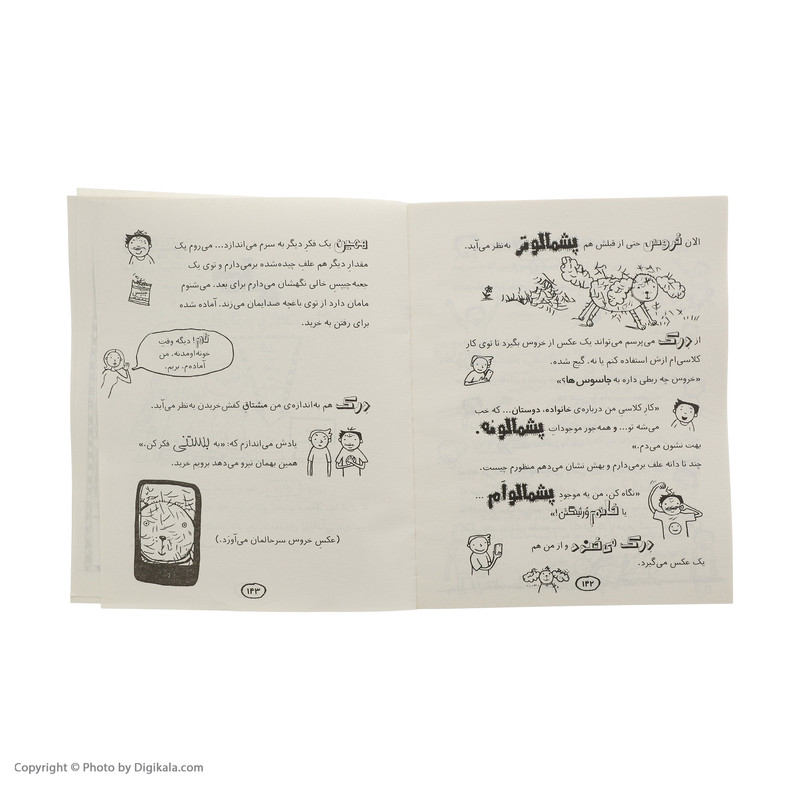 الان خروس حتی از قبلش هم پشمالوتر به‌نظر می‌آید.
از درک می‌پرسم می‌تواند یک عکس از خروس بگیرد تا توی کار
کلاسی‌ام ازش استفاده کنم یا نه. گیج شده.
«خروس چه ربطی داره به جاسوس‌ها؟»
«کار کلاسی من درباره‌ی خانواده، دوستان... که خب
می‌شه تو... و همه‌جور موجودات پشمالونه.
بهت نشون می‌دم.»
چند تا دانه علف برمی‌دارم و بهش نشان می‌دهم منظورم چیست.
«نگاه کن. من یه موجود پشمالوأم ...
یا خانوم وُرتینگتن!»
درک می‌خندد و از من هم
یک عکس می‌گیرد.
۱۴۲
همین یک فکر دیگر به سرم می‌اندازد... می‌روم یک
مقدار دیگر هم علفِ چیده‌شده برمی‌دارم و توی یک
جعبه‌چیپس خالی نگهشان می‌دارم برای بعد. می‌شنوم
مامان دارد از توی باغچه صدایمان می‌زند. آماده شده
برای رفتن به خرید.
تام! دیگه وقتِ
خونه‌اومدنه. من
آماده‌م. بریم.
درک هم به‌اندازه‌ی من مشتاقِ کفش‌خریدن به‌نظر می‌آید.
یادش می‌اندازم که: «به بستنی فکر کن.»
همین بهمان نیرو می‌دهد برویم خرید.
(عکسِ خروس سرحالمان می‌آورَد.)
۱۴۳
Copyright © Photo by Digikala.com